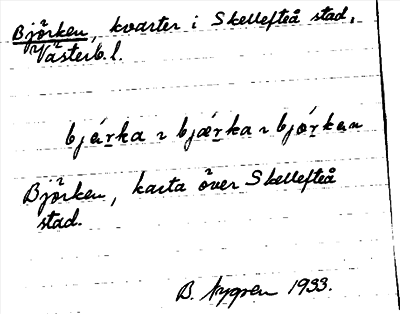 Björken, kvarter i Skellefteå stad,
Västerb. l.
bjá̱rka ~ bjǽ̱rka ~ bjó̱rkan
Björken, karta över Skellefteå
stad.
B. Nygren 1933.